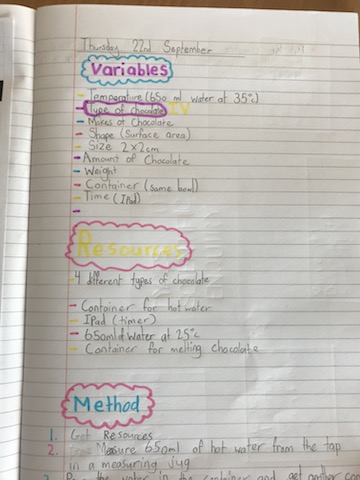 Thursday 22nd September
Variables
- Temperature (650 ml water at 35°c)
- Type of chocolate IV
- Makes of Chocolate
- Shape (Surface area)
- Size 2x2cm
- Amount of Chocolate
- Weight
- Container (same bowl)
- Time (IPad)
-
Resources
- 4 different types of chocolate
- Container for hot water
- IPad (timer)
- 650ml of Water at 25°c
- Container for melting chocolate
Method
1. Get Resources
2. Measure 650ml of hot water from the tap
in a measuring jug
the water in the container and get another